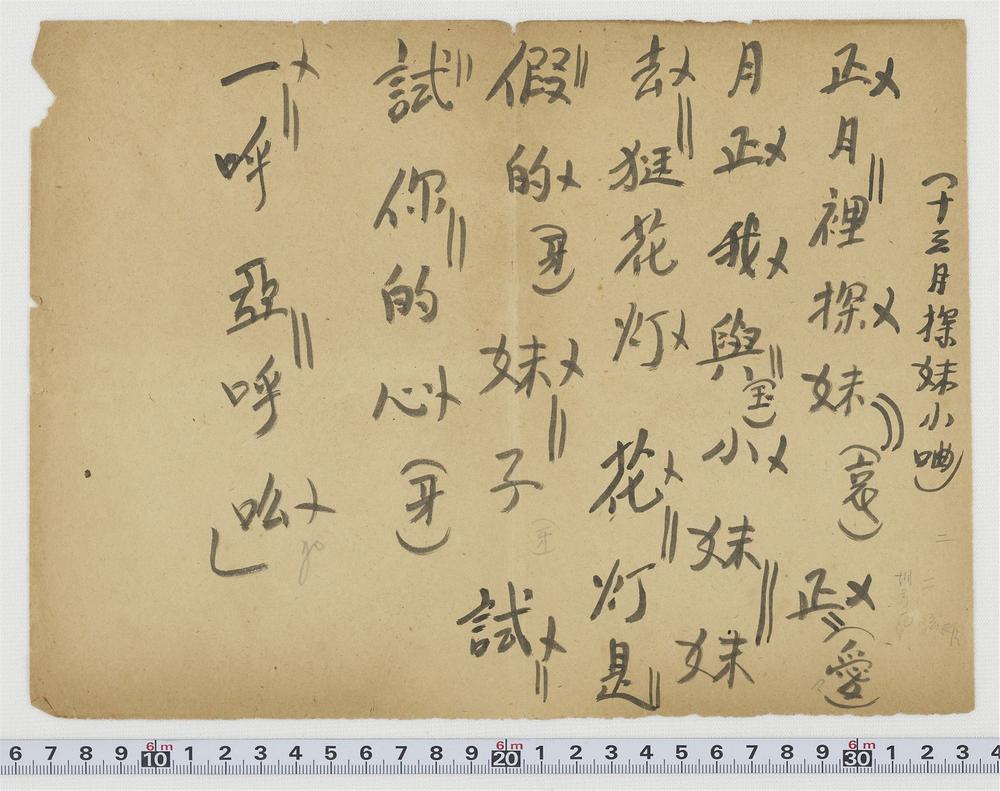 (十三月探妹小唓)
正月裡探妹(哀)正(愛)
月正我與(宝)小妹妹
去挺花灯花灯是
假的(哥)妹子試
試你的心(哥)
一呼亞呼吆
6 7 8 9 10 1 2 3 4 5 6 7 8 9 20 1 2 3 4 5 6 7 8 9 30 1 2 3 4